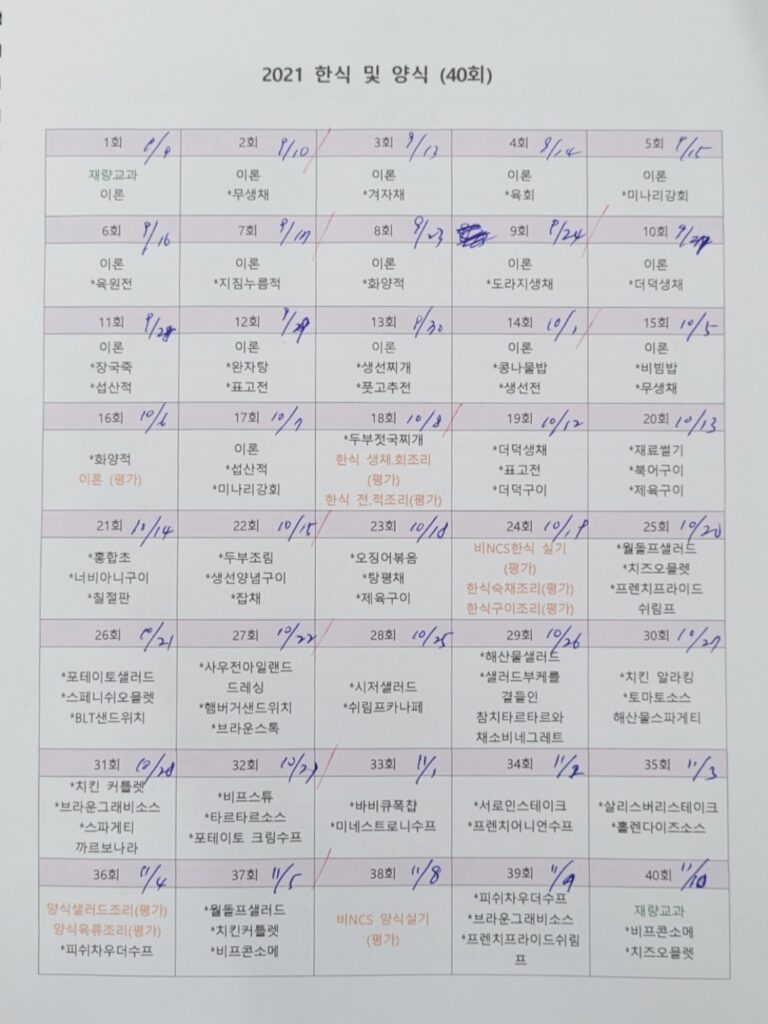 2021 한식 및 양식 (40회)
1회 9/9
재량교과
이론
2회 9/10
이론
*무생채
3회 9/13
이론
*겨자채
4회 9/14
이론
*육회
5회 9/15
이론
*미나리강회
6회 9/16
이론
*육원전
7회 9/17
이론
*지짐누름적
8회 9/23
이론
*화양적
9회 9/24
이론
*도라지생채
10회 9/27
이론
*더덕생채
11회 9/28
이론
*장국죽
*섭산적
12회 9/29
이론
*완자탕
*표고전
13회 9/30
이론
*생선찌개
*풋고추전
14회 10/1
이론
*콩나물밥
*생선전
15회 10/5
이론
*비빔밥
*무생채
16회 10/6
*화양적
이론 (평가)
17회 10/7
이론
*섭산적
*미나리강회
18회 10/8
*두부젓국찌개
한식 생채.회조리
(평가)
한식 전.적조리(평가)
19회 10/12
*더덕생채
*표고전
*더덕구이
20회 10/13
*재료썰기
*북어구이
*제육구이
21회 10/14
*홍합초
*너비아니구이
*칠절판
22회 10/15
*두부조림
*생선양념구이
*잡채
23회 10/18
*오징어볶음
*탕평채
*제육구이
24회 10/19
비NCS한식 실기
(평가)
한식숙채조리(평가)
한식구이조리(평가)
25회 10/20
*월돌프샐러드
*치즈오믈렛
*프렌치프라이드
쉬림프
26회 10/21
*포테이토샐러드
*스페니쉬오믈렛
*BLT샌드위치
27회 10/22
*사우전아일랜드
드레싱
*햄버거샌드위치
*브라운스톡
28회 10/25
*시저샐러드
*쉬림프카나페
29회 10/26
*해산물샐러드
*샐러드부케를
곁들인
참치타르타르와
채소비네그레트
30회 10/27
*치킨 알라킹
*토마토소스
해산물스파게티
31회 10/28
*치킨 커틀렛
*브라운그래비소스
*스파게티
까르보나라
32회 10/29
*비프스튜
*타르타르소스
*포테이토 크림수프
33회 11/1
*바비큐폭찹
*미네스트로니수프
34회 11/2
*서로인스테이크
*프렌치어니언수프
35회 11/3
*살리스버리스테이크
*홀렌다이즈소스
36회 11/4
양식샐러드조리(평가)
양식육류조리(평가)
*피쉬차우더수프
37회 11/5
*월돌프샐러드
*치킨커틀렛
*비프콘소메
38회 11/8
비NCS 양식실기
(평가)
39회 11/9
*피쉬차우더수프
*브라운그래비소스
*프렌치프라이드쉬림
프
40회 11/10
재량교과
*비프콘소메
*치즈오믈렛